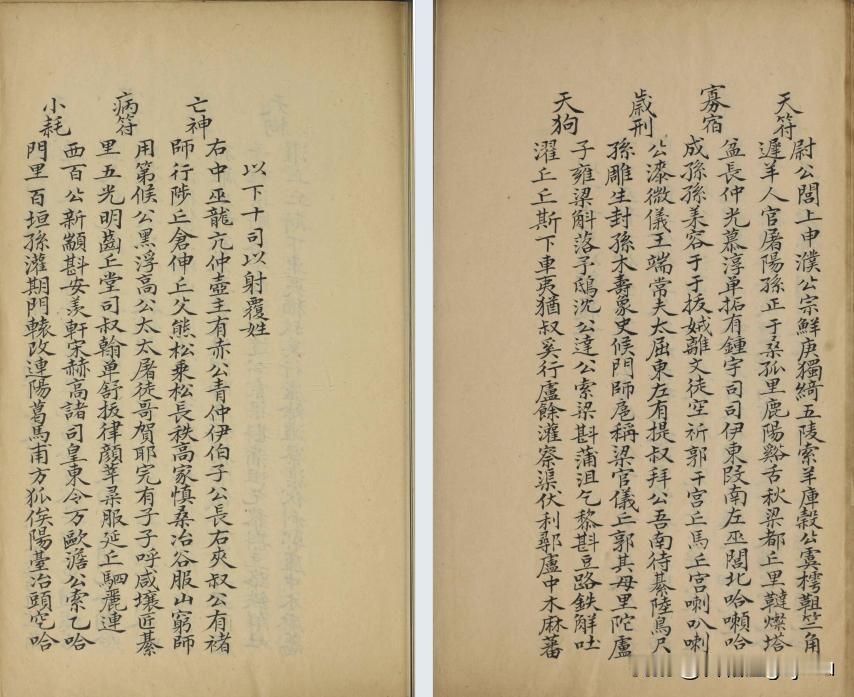 天符
尉公閭上申濮公宗鮮庚獨綺五陵索羊庫穀公寞樗鞙竺角
遲羊人官屠陽孫正于桑孤里鹿陽谿舌秋梁都丘里鞬燦塔
寡宿
盆長仲光慕淳單拓有鍾宇司司伊東段南左巫閭北哈嚬哈
成孫孫美容于于拔娀離文徒空祈郭干宮丘馬丘宮喇叭喇
歲刑
公漆微儀王端常夫太屈東左有提叔拜公吾南待綦陸鳥尺
孫雕生封孫木壽象史候門師扈稱梁官儀丘郭其母里陀盧
天狗
子雍梁斛落予鴟沈公達公索梁斟蒲沮乞黎斟豆路鉄觧吐
濯丘丘斯下車夷猶叔奚行盧餘灌察渠伏利鄩盧中木麻蕃
以下十司以射覆姓
亡神
右中巫龍亢仲壺主有赤公青仲伊伯子公長右夾叔公有褚
師行陟丘倉伸丘父熊松乘松長秩高家慎桑冶谷服山窮師
病符
用第候公黑浮高公太太屠徒哥賀耶完有子子呼咸壤匠綦
里五光明齒丘堂司叔翰單舒拔律顏莘桒服延丘駟麗連
小耗
西百公新顓斟安羨軒宋赫高諸司皇東令万歐澹公索乙哈
門里百垣孫灌期門轅改連陽葛馬甫方狐俟陽臺治頭窕哈